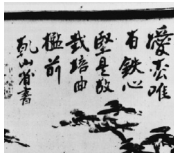 愛君唯
有鉄心
堅是故
栽培曲
檻前
乾山省書